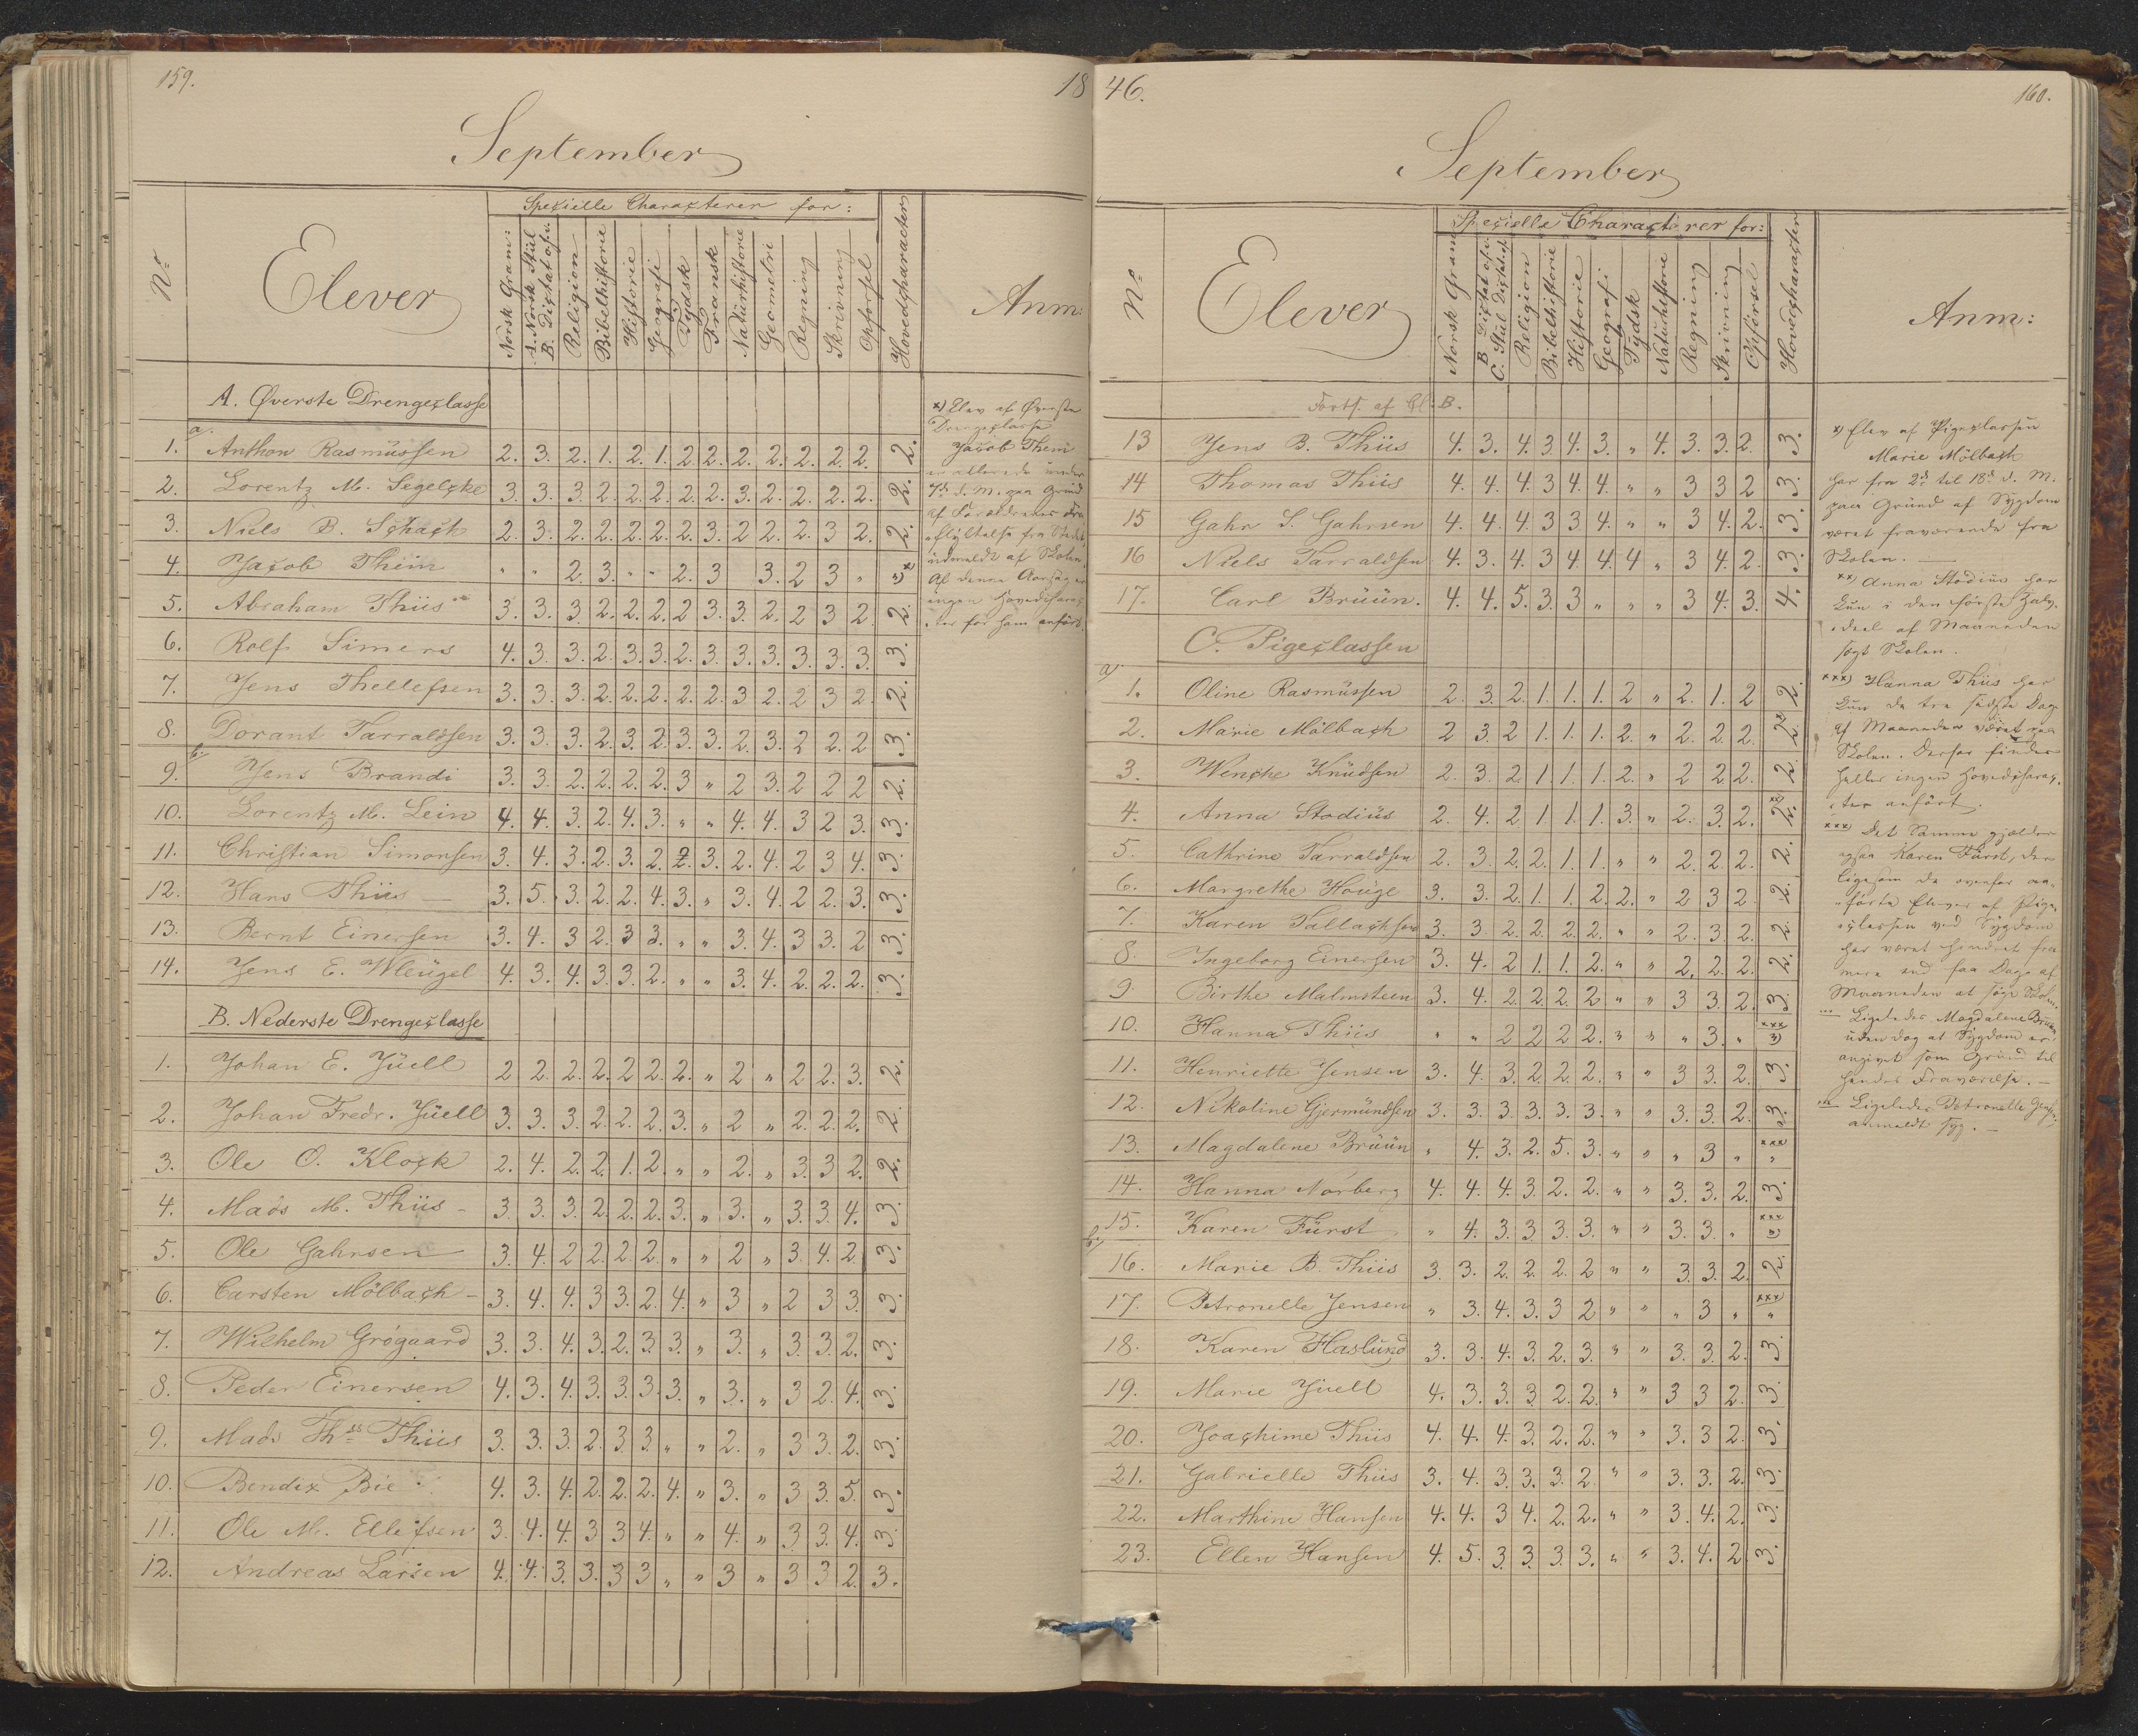 159.
18
September
Nº
Elever
Speçielle Charaçterer for:
Norsk Gram:
A. Norsk Stül
B. Diçtat ofv.
Religion
Bibelhistorie
Historie
Geografi
Tydsk
Fransk
Natürhistorie
Geometri
Regning
Skrivning
Opførsel
Hovedçharacter
Anm:
A. Øverste Drengeçlasse
a/.
1. Anthon Rasmüssen 2. 3. 2. 1. 2. 1. 2 2. 2. 2. 2. 2. 2. 2.
2. Lorentz M. Segelçke 3. 3. 3. 2. 2. 2. 2. 2. 3. 2. 2. 2. 2. 2.
3. Niels B. Sçhaçh 2. 3. 2. 2. 2. 2. 2. 3. 2. 2. 2. 3 2. 2.
4. Jaçob Thim " " 2. 3. " " 2. 3 3. 2 3 " "x)
5. Abraham Thiis 3. 3. 3. 2. 2. 2. 2 3. 3. 2. 2 3 2. 2.
6. Rolf Simers 4. 3. 3. 2. 3. 3. 2. 3. 3. 3. 3. 3. 3. 3.
7. Jens Thellefsen 3. 3. 3. 2. 2. 2. 2. 2. 3 2. 2 3 2. 2.
8. Dorant Tarraldsen 3. 3. 3. 2. 3. 2. 3. 3. 2. 3. 2 2. 2 3.
b/.
9. Jens Brandi 3. 3. 2. 2. 2. 2. 3 " 2 3. 2 2 2 2.
10. Lorentz M. Lein 4. 4. 3. 2. 4. 3. " " 4. 4. 3 2 3. 3.
11. Christian Simonsen 3. 4. 3. 2. 3. 2. 2. 3. 2. 4. 2 3 4. 3.
12. Hans Thiis 3. 5. 3. 2. 2. 4. 3. " 3. 4. 2 2. 3. 3.
13. Bernt Einersen 3. 4. 3 2. 3 3. " " 3. 4. 3 3. 2 3.
14. Jens E. Wleügel 4. 3. 4. 3. 3. 2. " " 3. 4. 2. 2. 2. 3.
B. Nederste Drengeçlasse
1. Johan E. Jüell 2 2. 2. 2. 2 2. 2. " 2 " 2 2. 3. 2.
2. Johan Fredr. Jüell 3. 3. 3. 2. 2. 2. 3. " 2 " 2. 2. 2. 2.
3. Ole O. Kloçk 2. 4. 2. 2. 1. 2. " " 2. " 3. 3 2. 2.
4. Mads M. Thiis 3 3. 3. 2. 2. 2. 3. " 3. " 3. 3. 4. 3.
5. Ole Gahrsen 3. 4. 2 2. 2. 2. " " 2 " 3. 4. 2. 3.
6. Carsten Mölbaçh 3. 4. 4. 3 3. 2. 4. " 3 " 2 3 3. 3.
7. Wilhelm Grögaard 3. 3. 4. 3. 2. 3. 3. " 3. " 3. 3. 2. 3.
8. Peder Einersen 4. 3. 4. 3. 3. 3. 3. " 3. " 3 2. 4. 3.
9. Mads Ths Thiis 3. 3. 3. 2. 3. 3. " " 2. " 3 3. 2. 3.
10. Bendix Bie 4. 3. 4. 2. 2. 2. 4. " 3. " 3 3. 5. 3.
11. Ole M. Ellefsen 3. 4. 4. 3 3 4. " " 4. " 3 3. 4. 3.
12. Andreas Larsen 4. 4. 3. 3. 3 3 " " 3 " 3 3 2. 3.
x) Elev af Øverste
Drengeçlasse
Jaçob Thim
er allerede ünder
7de d. M. paa Grund
af Forældrenes Fra
flyttelse fra Stedet
üdmeldt af Skolen
Af denne Aarsag er
ingen Hovedçharaç
ter for ham anført.
46.
160.
September
Nº
Elever
Speçielle Characterer for:
Norsk Gram
B Diçtat ofv.
C. Stül Diçtat
Religion
Bibelhistorie
Historie
Geografi
Tydsk
Natürhistorie
Regning
Skrivning
Opførsel
Hovedçharaçter
Anm:
Forts. af Cl. B.
13 Jens B. Thiis 4. 3. 4. 3. 4. 3. " 4. 3. 3. 2. 3.
14 Thomas Thiis 4. 4. 4. 3 4. 4. " " 3 3 2 3.
15 Gahr S. Gahrsen 4. 4. 4. 3 3 4. " " 3 4. 2. 3.
16 Niels Tarraldsen 4. 3. 4. 3 4 4. 4 " 3 4. 2. 3.
17. Carl Brüün. 4. 4. 5. 3. 3 " " " 3 4. 3. 4.
C. Pigeçlassen
a/.
1. Oline Rasmüssen 2. 3. 2. 1. 1. 1. 2 " 2. 1. 2 2.
2. Marie Mölbaçh 2 3. 2 1. 1. 1. 2. " 2. 2. 2. 2.x)
3. Wençhe Knüdsen 2. 3. 2. 1. 1. 1. 2. " 2 2. 2. 2.
4. Anna Stodiüs 2. 4. 2 1 1. 1. 3. " 2. 3. 2. 2.xx)
5. Cathrine Tarraldsen 2. 3. 2. 2. 1. 1. " " 2. 2. 2. 2.
6. Margrethe Houge 3. 3. 2. 1. 1. 2. 2. " 2 3 2. 2.
7. Karen Tallaçhsen 3. 3. 2. 2. 2. 2. " " 2. 3. 2. 2.
8. Ingeborg Einersen 3. 4. 2 1. 1. 2. " " 2. 2. 2. 2.
9 Birthe Malmsteen 3. 4. 2. 2. 2. 2 " " 3 3. 2. 3.
10. Hanna Thiis " " 2 2 2 2. " " " 3. " xxx)
11. Henriette Jensen 3. 4. 3. 2. 2. 2. " " 3 3. 2. 3.
12. Nikoline Gjermündsen 3. 3. 3. 3. 3. 3. " " 3. 3. 2. 3.
13. Magdalene Brüün " 4. 3. 2. 5. 3. " " " 3 " xxx "
14. Hanna Nörberg 4. 4. 4. 3. 2. 2. " " 3. 3. 2. 3.
b/.
15. Karen Fürst " 4. 3. 3. 3. 3. " " 3. 3. " xxx)
16. Marie B. Thiis 3. 3. 2. 2. 2. 2 " " 3. 3. 2. 2.
17. Petronelle Jensen " 3. 4. 3. 3 2 " " " 3 " xxx "
18. Karen Haslund 3. 3. 4. 3. 2. 3. " " 3. 3. 2. 3
19. Marie Jüell 4. 3. 3. 3 2. 2. " " 3 3 2. 3.
20. Joaçhime Thiis 4. 4. 4. 3. 2. 2. " " 3. 3 2. 3.
21. Gabrielle Thiis 3. 4. 3. 3. 3. 2. " " 3. 3. 2. 3.
22. Marthine Hansen 4. 4. 3 4. 2. 2. " " 3. 4. 2. 3.
23. Ellen Hansen 4. 5. 3. 3. 3. 3. " " 3. 4. 2. 3.
x) Elev af Pigeçlassen
Marie Mölbaçh
har fra 2de til 18de d. M.
paa Gründ af Sygdom
været fraværende fra
Skolen.
xx) Anna Stodiüs har
kün i den første Halv-
deel af Maaneden
søgt Skolen.
xxx) Hanna Thiis har
kün de tre sidste Dage
af Maaneden været paa
Skolen. Derfor findes
heller ingen Hovedçharaç-
ter anført.
xxx) Det Samme gjælder
ogsaa Karen Fürst, der
ligesom de ovenfor an-
førte Elever af Pige-
çlassen ved Sygdom
har været hindret fra
mere end faa Dage af
Maaneden at søge Skolen.
Ligeledes Magdalene Brüün
uden dog at Sygdom er
angivet som Gründ til
hendes Fraværelse.
Ligeledes Petronelle Jensen
anmeldt syg.